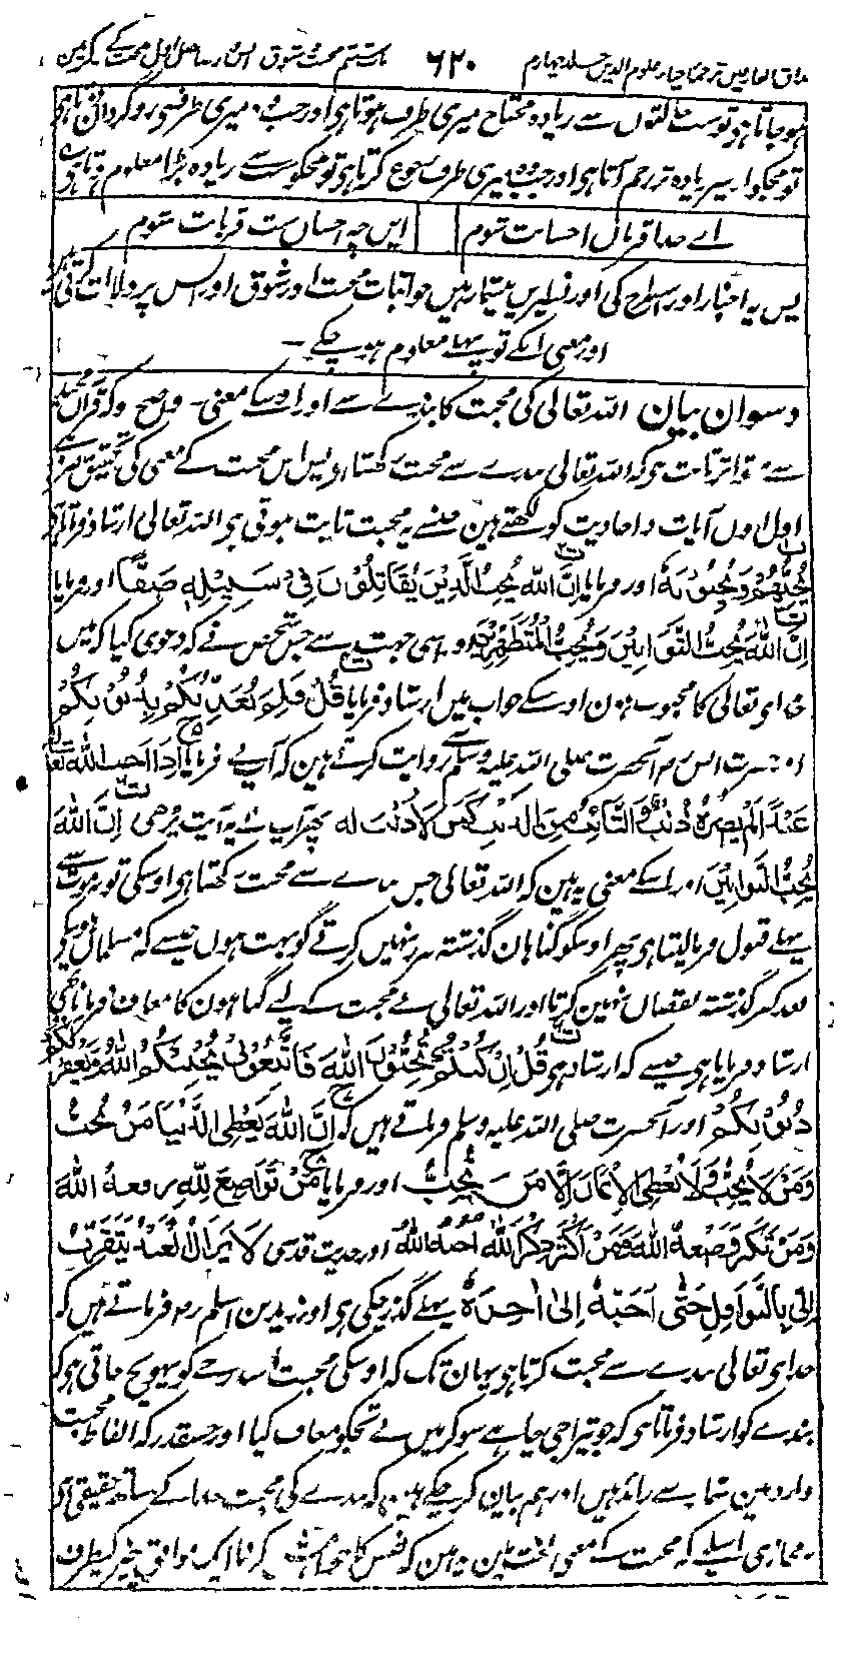 مذاق العارفین ترجمہ احیاء علوم الدین جلد چہارم ۶۲۰ باب ششم محبت و شوق انس و رضا فصل اول محبت کے ذکر میں
ہو جاتا ہو تو سب حالتوں سے زیادہ محتاج میری طرف ہوتا ہی اور جب وہ میری طرف سے روگردان ہوتا ہو
تو مجکو اسپر زیادہ تر رحم آتا ہی اور جب وہ میری طرف رجوع کرتا ہی تو مجکو سب سے زیادہ بڑا معلوم ہوتا ہے
اے خدا قربان احسانت شوم این چہ احسان ست قربانت شوم
پس یہ اخبار اور اسطرح کی اور نظیریں بیشمار ہیں جو اثبات محبت اور شوق اور انس پر دلالت کرتی ہیں
اور معنی انکے تو پہلے معلوم ہو چکے ۔
دسوان بیان اللہ تعالی کی محبت کا بندے سے اور اوسکے معنی ۔ واضح ہو کہ قرآن مجید
سے متواتر ثابت ہو کہ اللہ تعالی بندے سے محبت رکھتا ہو پس اس محبت کے معنی کی تحقیق ضرور ہے
اول اون آیات و احادیث کو لکھتے ہین جنسے یہ محبت ثابت ہوتی ہی اللہ تعالی ارشاد فرماتا ہو
یُحِبُّهُمْ وَیُحِبُّوْنَهٗ اور فرمایا اِنَّ اللّٰهَ یُحِبُّ الَّذِیْنَ یُقَاتِلُوْنَ فِیْ سَبِیْلِهٖ صَفًّا اور فرمایا
اِنَّ اللّٰهَ یُحِبُّ التَّوَّابِیْنَ وَیُحِبُّ الْمُتَطَهِّرِیْنَ اور اسی جہت سے جس شخص نے کہ دعوی کیا کہ میں
خدای تعالی کا محبوب ہون اوسکے جواب میں ارشاد فرمایا قُلْ فَلِمَ یُعَذِّبُکُمْ بِذُنُوْبِکُمْ
اور حضرت انس رض آنحضرت صلی اللہ علیہ وسلم سے روایت کرتے ہین کہ آپ نے فرمایا اِذَا اَحَبَّ اللّٰهُ تعالی
عَبْدًا لَمْ یَضُرَّهٗ ذَنْبٌ وَالتَّائِبُ مِنَ الذَّنْبِ کَمَنْ لَا ذَنْبَ لَه پھر آپ نے یہ آیت پڑھی اِنَّ اللّٰهَ
یُحِبُّ التَّوَّابِیْنَ اور اسکے معنی یہ ہین کہ اللہ تعالی جس بندے سے محبت رکھتا ہو اوسکی توبہ موت سے
پہلے قبول فرما لیتا ہو پھر اوسکو گناہان گذشتہ ضرر نہیں کرتے گو بہت ہوں جیسے کہ مسلمان ہونیکے
بعد کفر گذشتہ نقصان نہین کرتا اور اللہ تعالی نے محبت کے لیے گناہون کا معاف فرمانا بھی
ارشاد فرمایا ہو جیسے کہ ارشاد ہو قُلْ اِنْ کُنْتُمْ تُحِبُّوْنَ اللّٰهَ فَاتَّبِعُوْنِیْ یُحْبِبْکُمُ اللّٰهُ وَیَغْفِرْ لَکُمْ
ذُنُوْبَکُمْ اور آنحضرت صلی اللہ علیہ وسلم فرماتے ہیں کہ اِنَّ اللّٰهَ یُعْطِی الدُّنْیَا مَنْ یُحِبُّ
وَمَنْ لَا یُحِبُّ وَلَا یُعْطِی الْاِیْمَانَ اِلَّا مَنْ یُحِبُّ اور فرمایا مَنْ تَوَاضَعَ لِلّٰهِ رفعهُ اللّٰهُ
وَمَنْ تَکَبَّرَ وَضَعَهُ اللّٰهُ وَمَنْ اَکْثَرَ ذِکْرَ اللّٰهِ اَحَبَّهُ اللّٰهُ اور حدیث قدسی لَا یَزَالُ الْعَبْدُ یَتَقَرَّبُ
اِلَیَّ بِالنَّوَافِلِ حَتّٰی اُحِبَّهٗ اِلٰی اٰخِرِهٖ پہلے گذر چکی ہو اور زید بن اسلم رہ فرماتے ہیں کہ
خدای تعالی بندے سے محبت کرتا ہو یہان تک کہ اوسکی محبت اس درجے کو پہونچ جاتی ہو کہ
بندے کو ارشاد فرماتا ہو کہ جو تیرا جی چاہے سو کر میں نے تجکو معاف کیا اور جسقدر کہ الفاظ محبت
وارد ہین شمار سے زائد ہیں اور ہم بیان کر چکے ہین کہ بندے کی محبت خدا کے ساتھ حقیقی ہو
نہ مجازی اسلیے کہ محبت کے معنی لغت میں یہ ہین کہ نفس کا خواہش کرنا ایک موافق چیز کیطرف